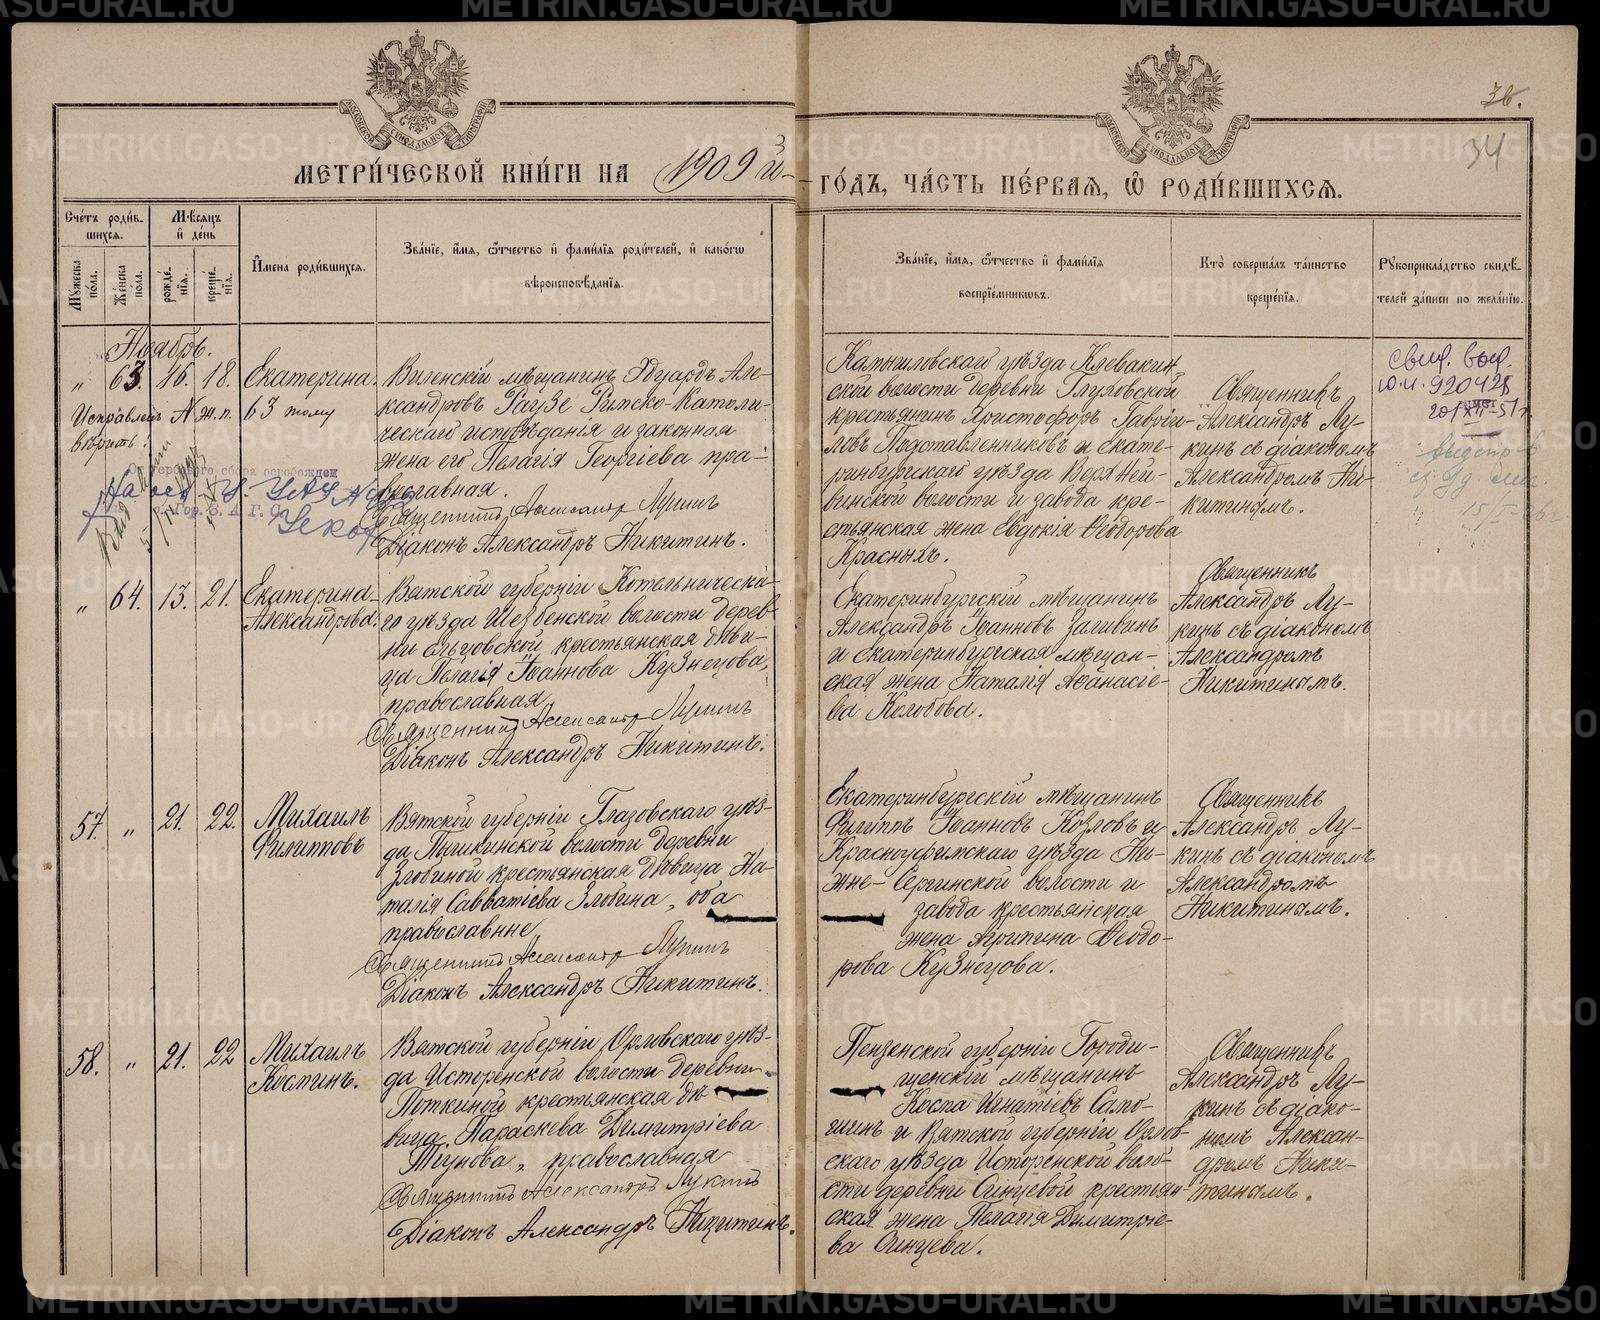 МЕТРИ́ЧЕСКОЙ КНИ́ГИ НА 1909 й
ГО́ДЪ, ЧА́СТЬ ПЕ́РВАЯ, Ѽ РОДИ́ВШИХСЯ.
36.
34
Сче́тъ роди́в-
шихся.
Мѣ́сяцъ
и̂ де́нь
Му́жеска по́ла.
Же́нска по́ла.
рожде́нїя.
креще́нїя.
И̂мена роди́вшихся.
Зва́нїе, и̂мя, ѻ҆́тчество и̂ фами́лїя роди́телей, и̂ како́гѡ
вѣроисповѣ́данїя.
Зва́нїе, и̂мя, ѻ҆́тчество и̂ фами́лїя
воспрїе́мниковъ.
Кто̀ соверша́лъ та́инство
креще́нїя.
Рꙋкоприкла́дство свидѣ́-
телей за́писи по жела́нїю.
Ноябрь.
„ 63. 16. 18. Екатерина.
Исправленъ № ж. п. 63 тому
вѣрить.
Виленскій мѣщанинъ Эдуардъ Але-
ксандровъ Гаузе Римско-Католи-
ческаго исповѣданія и законная
жена его Пелагія Георгіева пра-
вославная.
Священникъ Александръ Лукинъ
Діаконъ Александръ Никитинъ.
Камышловскаго уѣзда Клевакин-
ской волости деревни Глуховской
крестьянинъ Христофоръ Гаврiи-
ловъ Подставленниковъ и Екате-
ринбургскаго уѣзда Верхней-
винской волости и завода кре-
стьянская жена Евдокія Ѳеодорова
Красныхъ.
Священникъ
Александръ Лу-
кинъ съ діакономъ
Александромъ Ни-
китинымъ.
гербового сбора освобожден
Гор. З. А. Г. С.
„ 64. 13. 21. Екатерина
Александрова.
Вятской губерніи Котельническа-
го уѣзда
волости дерев-
ни Ельцовской крестьянская дѣви-
ца Пелагія Іоаннова Кузнецова,
православная
Священникъ Александръ Лукинъ
Діаконъ Александръ Никитинъ.
Екатеринбургскій мѣщанинъ
Александръ Іоанновъ Заливинъ
и Екатеринбургская мѣщан-
ская жена Наталія Аѳанасіе-
ва Колобова.
Священникъ
Александръ Лу-
кинъ съ діакономъ
Александромъ
Никитинымъ.
57. „ 21. 22. Михаилъ
Филипповъ
Вятской губерніи Глазовскаго уѣз-
да, волости деревни
Злобиной крестьянская дѣвица На-
талія Савватіева Злобина, оба
православные
Священникъ Александръ Лукинъ
Діаконъ Александръ Никитинъ.
Екатеринбургскій мѣщанинъ
Филиппъ Іоанновъ Козловъ и
Красноуфимскаго уѣзда Ни-
жне-Сергинской волости и
завода крестьянская
жена Агрипина Ѳеодо-
рова Кузнецова.
Священникъ
Александръ Лу-
кинъ съ діакономъ
Александромъ
Никитинымъ.
58. „ 21. 22 Михаилъ
Косминъ.
Вятской губерніи Орловскаго уѣз-
да Исторенской волости деревни
Поткиной крестьянская дѣ
вица Параскева Димитріева
Тиунова, православная
Священникъ Александръ Лукинъ
Діаконъ Александръ Никитинъ.
Пензенской губерніи Городи-
щенскій мѣщанинъ
Косма Игнатіевъ Само-
шинъ и Вятской губерніи Орлов-
скаго уѣзда Исторенской воло-
сти деревни Синцевой крестьян-
ская жена Пелагія Димитріе-
ва Синцева.
Священникъ
Александръ Лу-
кинъ съ діако-
номъ Алексан-
дромъ Ники-
тинымъ.
METRIKI.GASO-URAL.RU